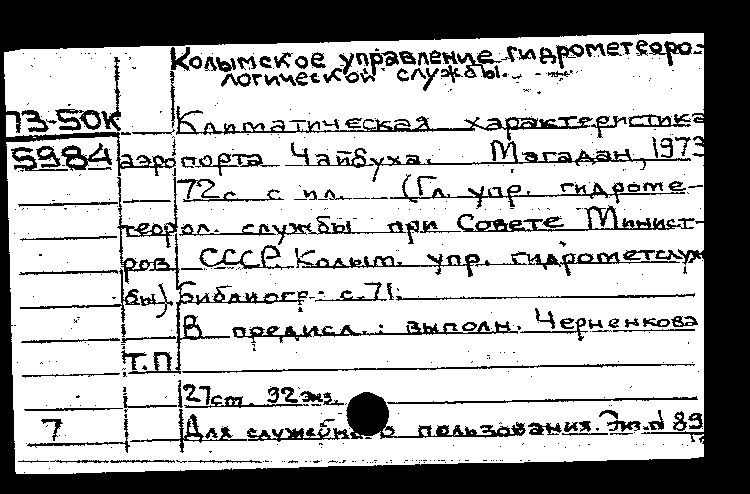 Колымское управление гидрометеоро-
логической службы.
73-50К Климатическая характеристика
5984 аэропорта Чайбуха. Магадан, 1973
72с с ил. (Гл. упр. гидроме-
теорол. службы при Совете Минист-
ров СССР. Колым. упр. гидрометслуж
бы). Библиогр: с.71.
В предисл.: выполн. Черненкова
Т.П.
27см. 92 экз.
7 Для служебного пользования. Экз.№ 89